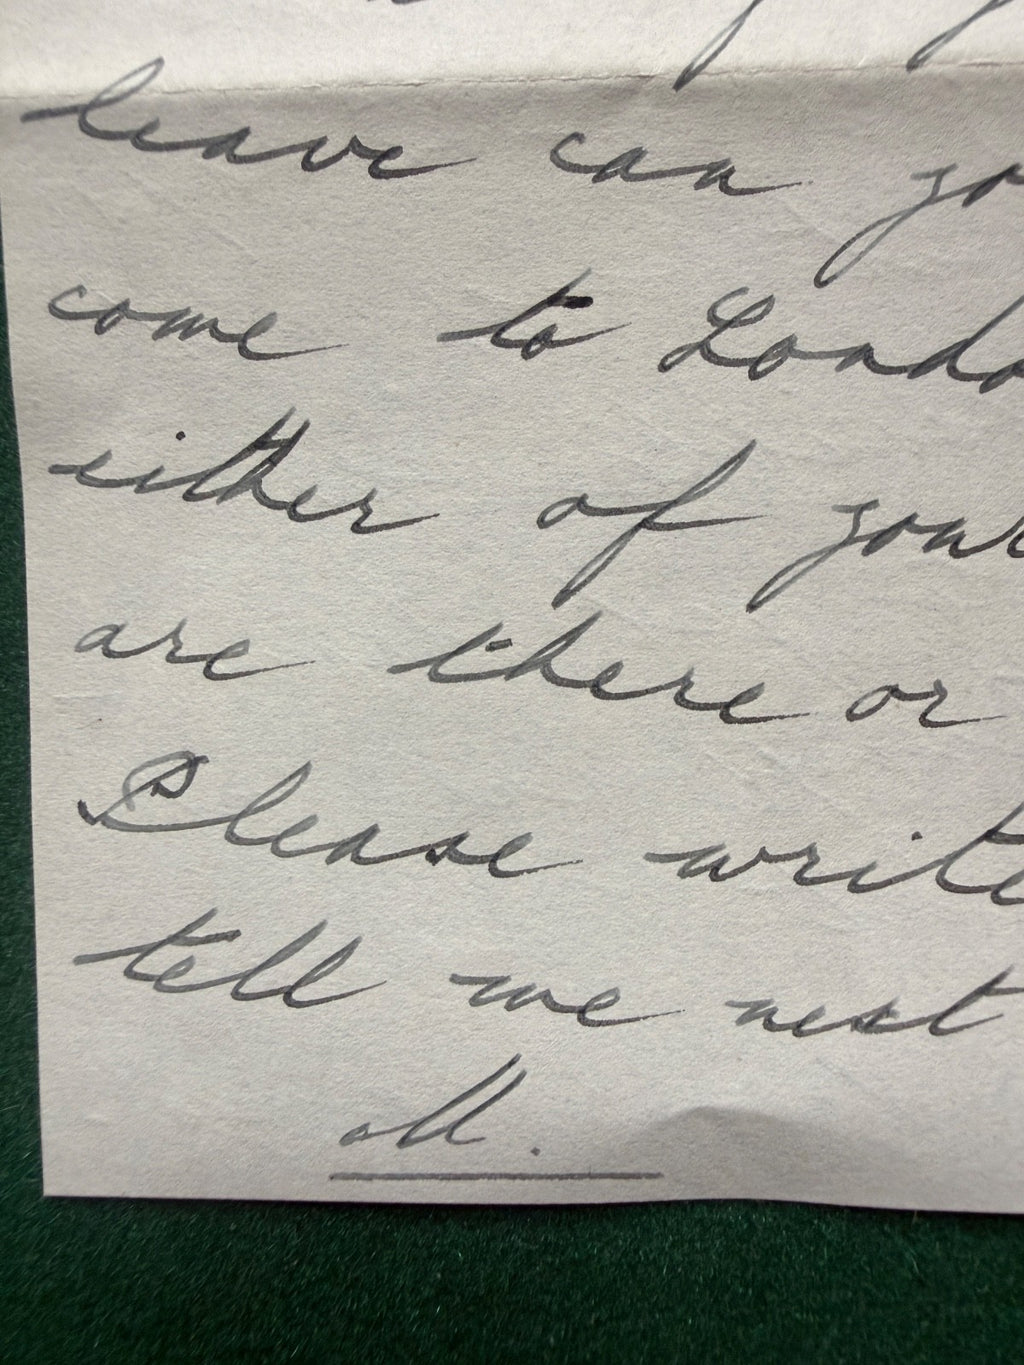 leave can yo
come to Londo
either of your
are there or
Please write
tell me next
all.